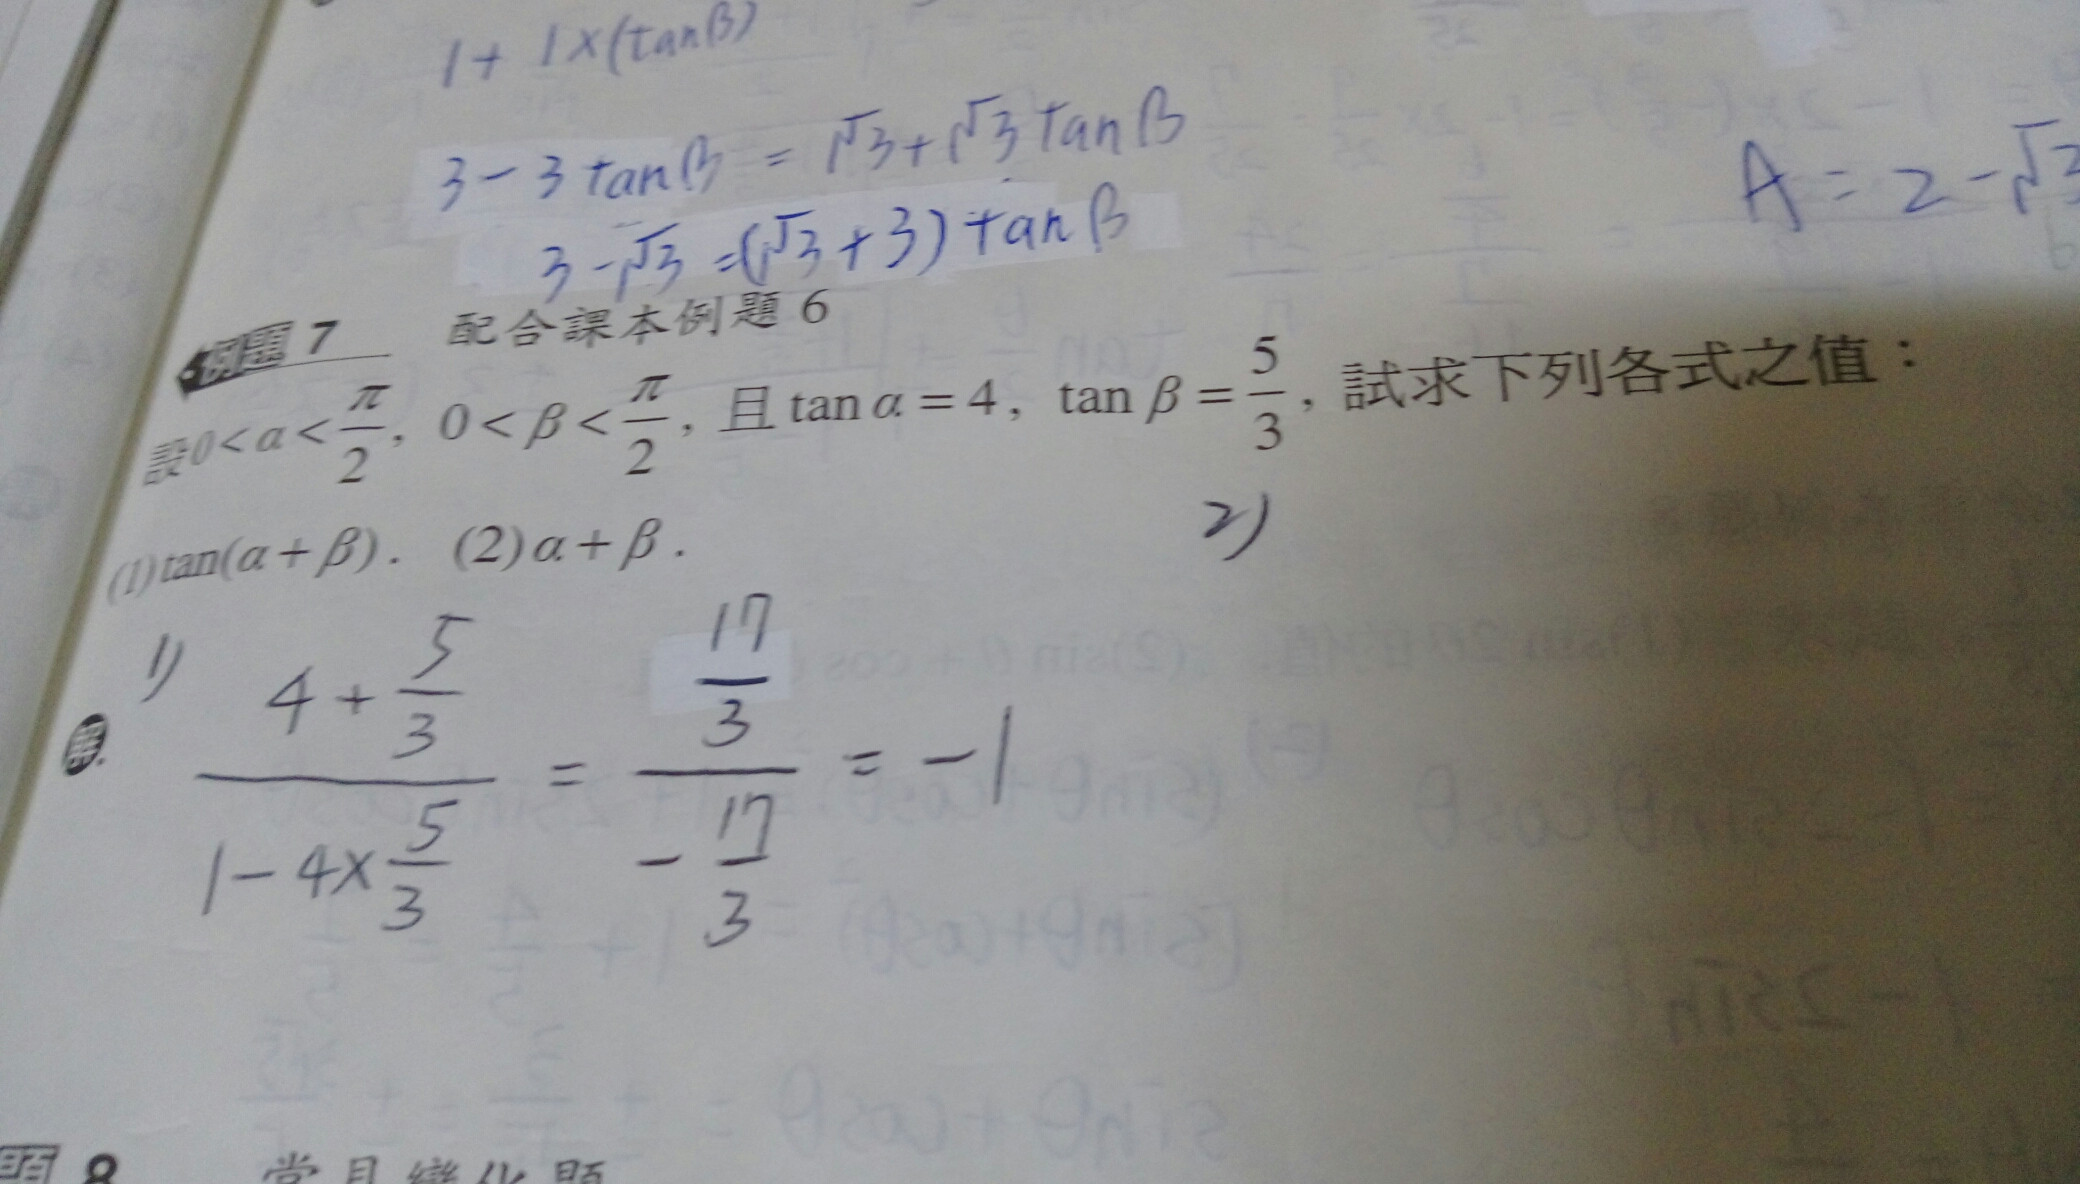 1+1×(tanβ)
3-3tanβ=√3+√3tanβ
A=2-√3
3-√3=(√3+3)tanβ
例題7 配合課本例題6
設0<α<π/2, 0<β<π/2, 且tan α=4, tan β=5/3, 試求下列各式之值:
(1)tan(α+β). (2)α+β.
2)
1)
解.
(4+5/3)/(1-4×5/3) = (17/3)/(-17/3) = -1
題8 常見變化題